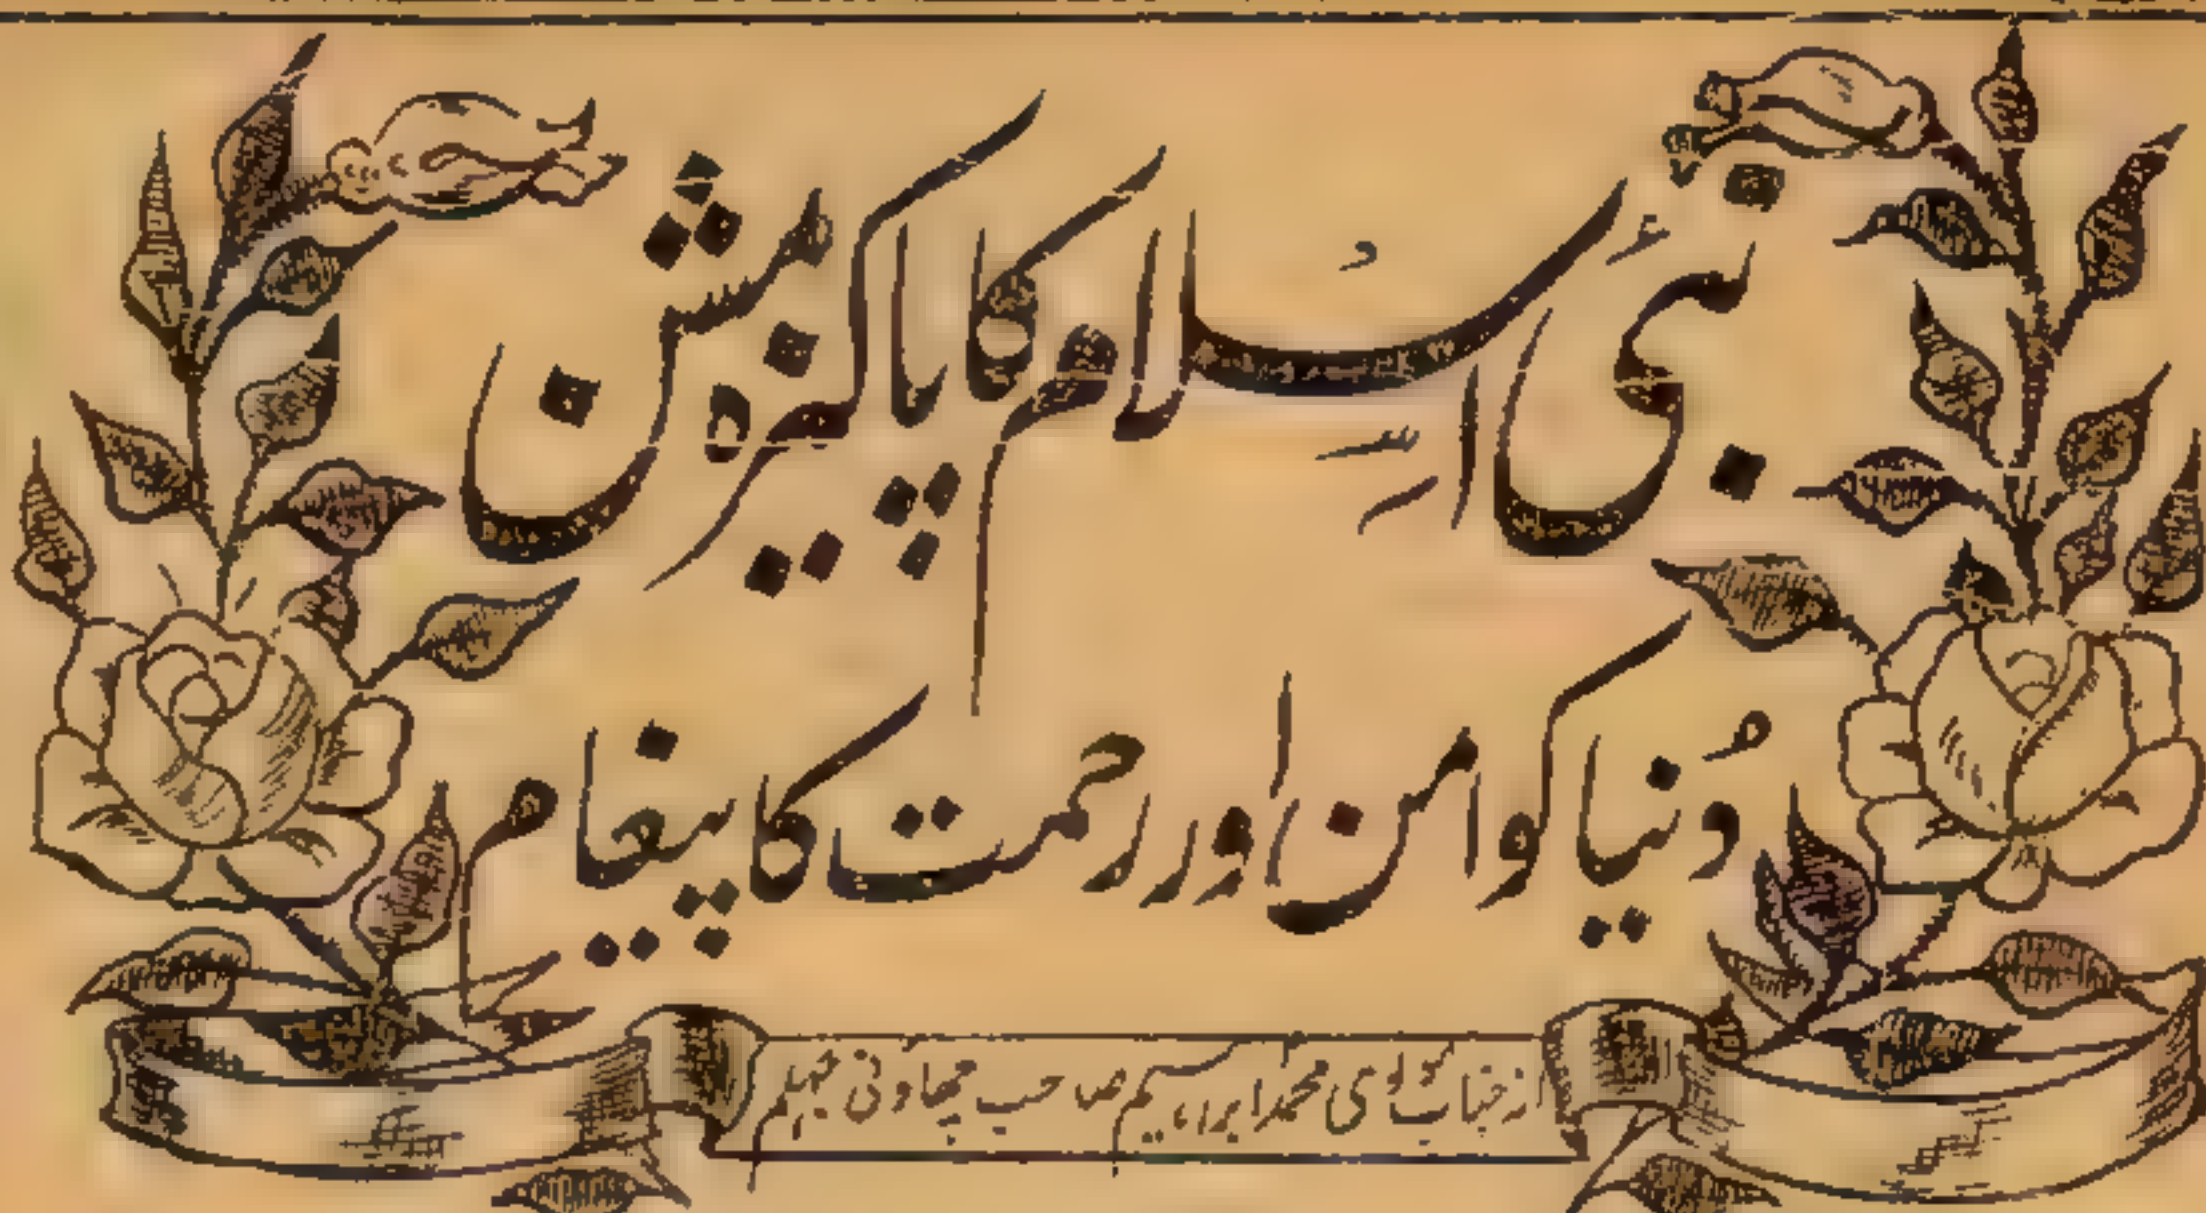 نبیٔ اسلام کا پاکیزہ مشن
دُنیا کو امن اور رحمت کا پیغام
از جناب مولوی محمد ابراہیم صاحب چھاونی جہلم